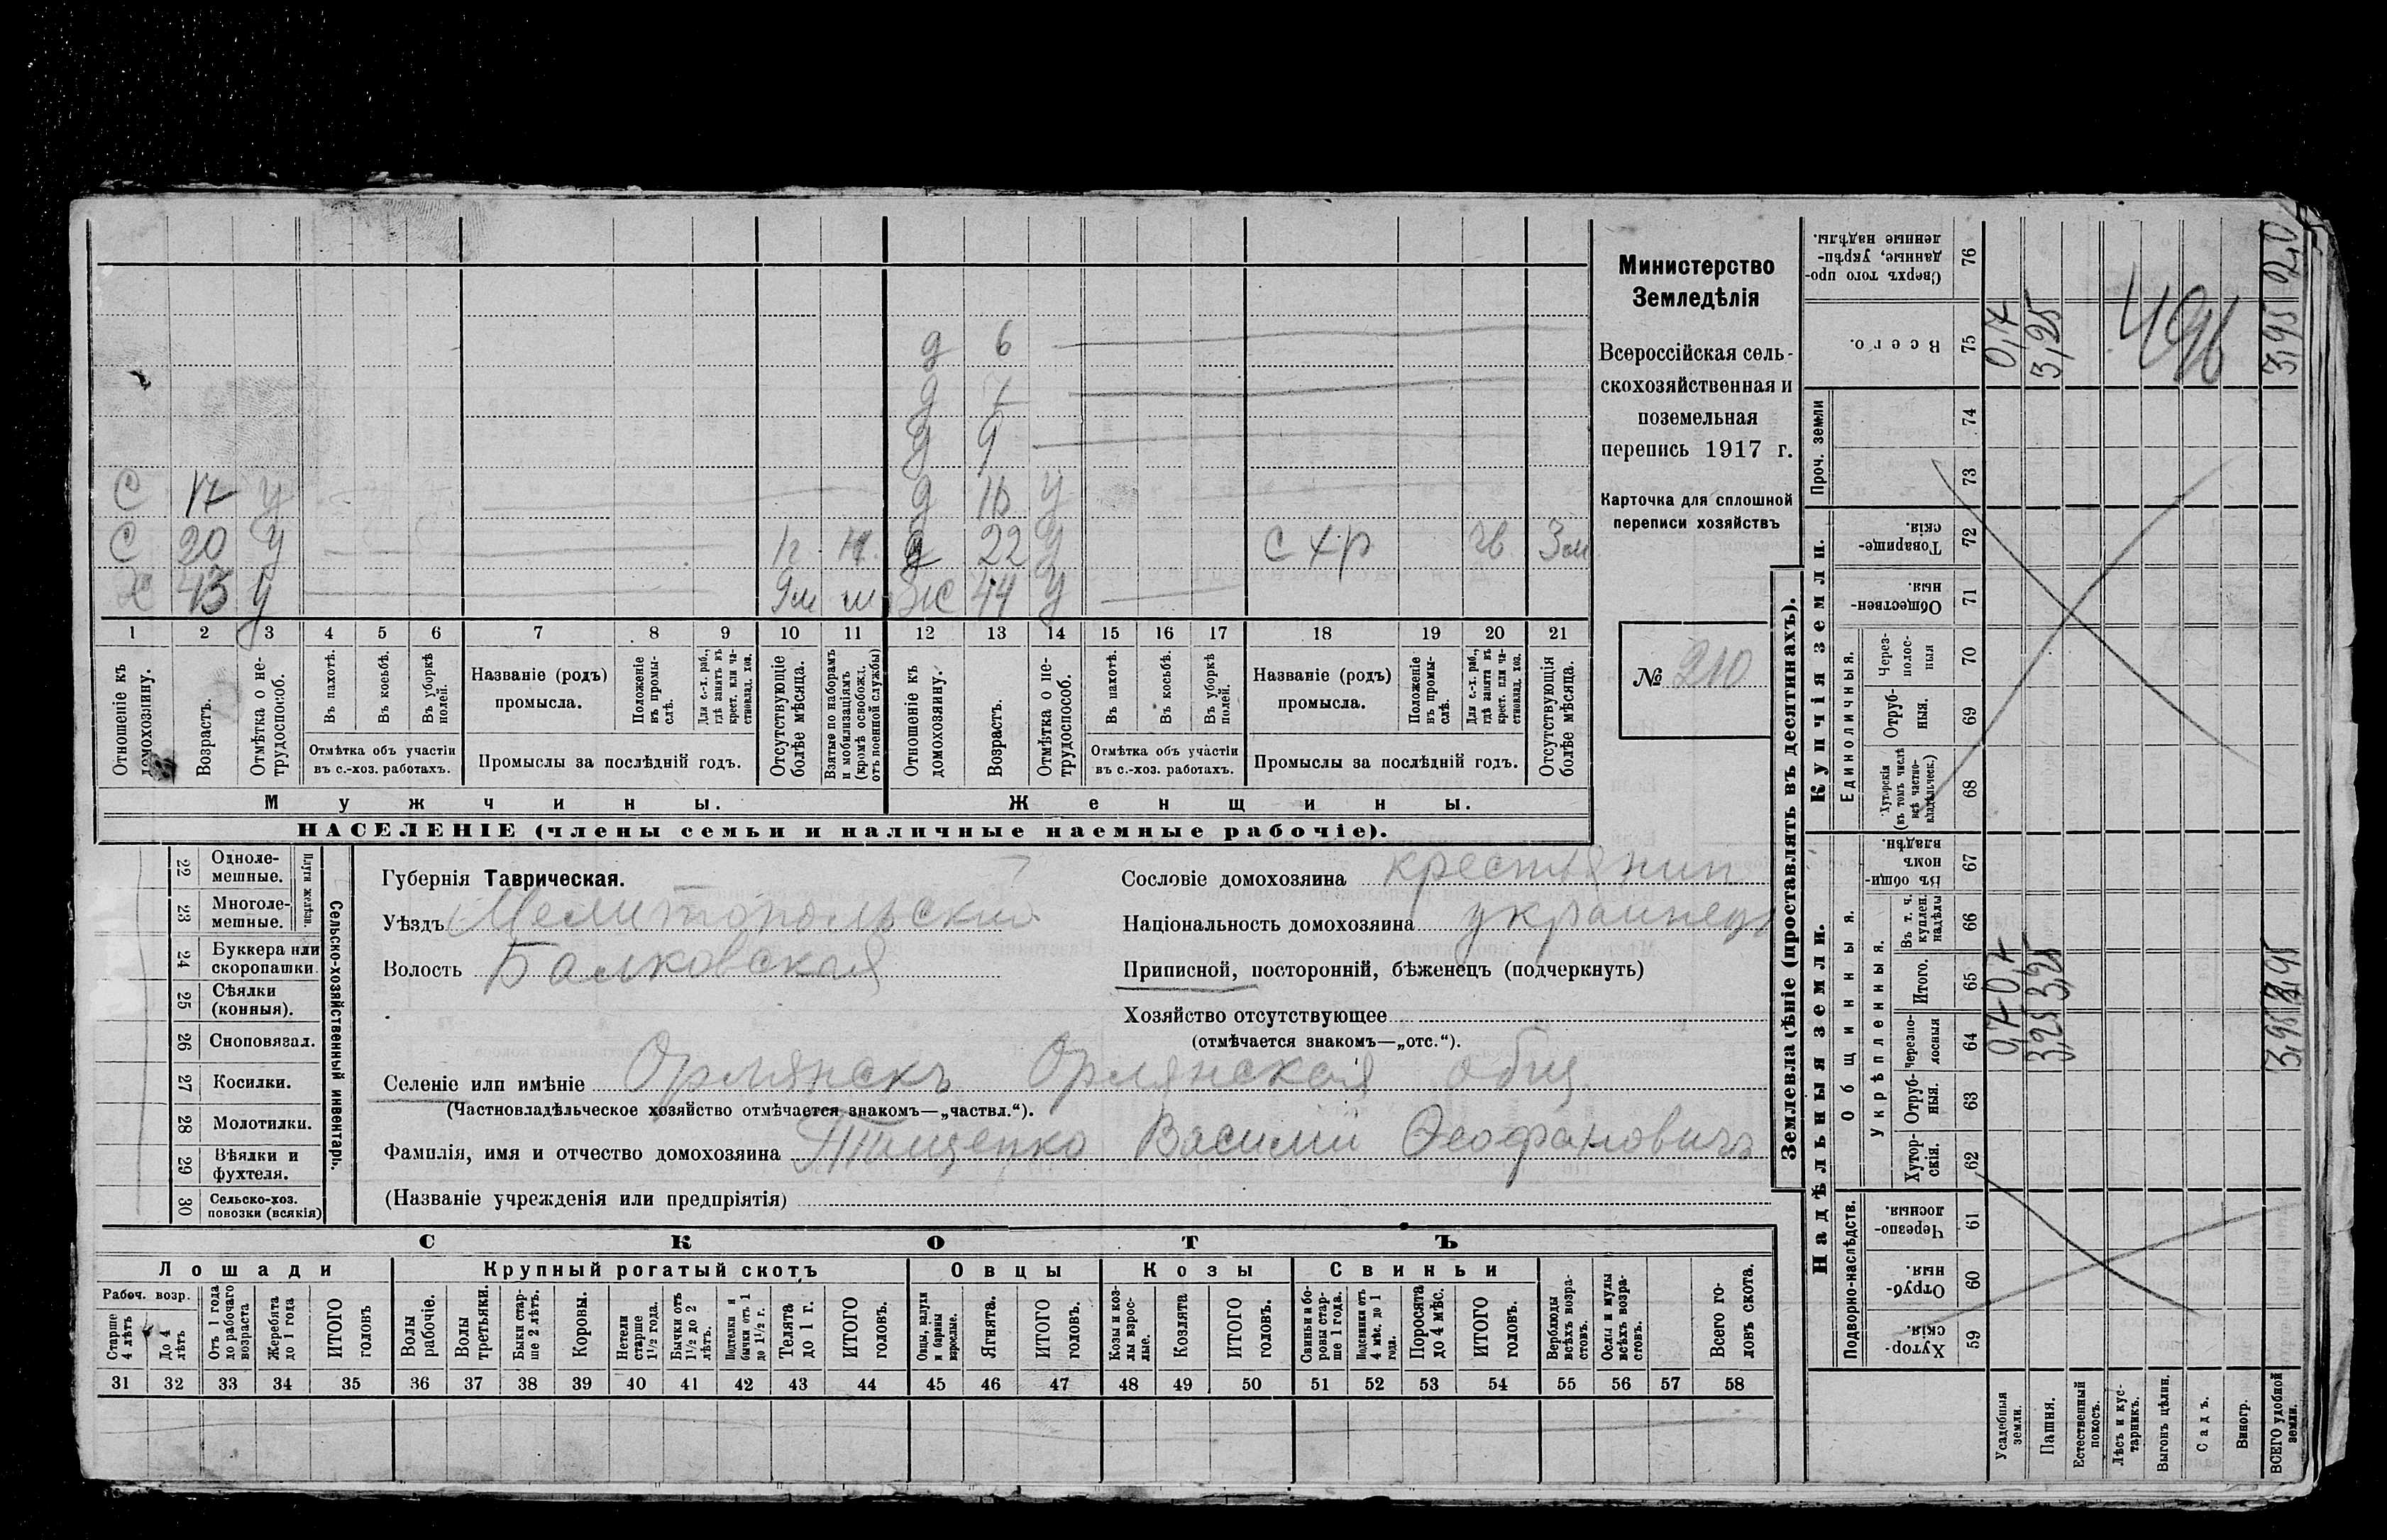 д 6
д 7
д 9
С 17 у д у
С 20 у д 22 у с хр 3 м
Х 43 у 9м ж 44 у
1 2 3 4 5 6 7 8 9 10 11 12 13 14 15 16 17 18 19 20 21
Отношеніе къ домохозяину.
Возрастъ.
Отмѣтка о нетрудоспособ.
Въ пахотѣ.
Въ косьбѣ.
Въ уборкѣ полей.
Отмѣтка объ участіи въ с.-хоз. работахъ.
Названіе (родъ) промысла.
Положеніе въ промыслѣ.
Для с.-х. раб., гдѣ занятъ въ крест. или частновлад. хоз.
Промыслы за послѣдній годъ.
Отсутствующіе болѣе мѣсяца.
Взятые по наборамъ и мобилизаціямъ (кромѣ освобожд. отъ военной службы)
Отношеніе къ домохозяину.
Возрастъ.
Отмѣтка о нетрудоспособ.
Въ пахотѣ.
Въ косьбѣ.
Въ уборкѣ полей.
Отмѣтка объ участіи въ с.-хоз. работахъ.
Названіе (родъ) промысла.
Положеніе въ промыслѣ.
Для с.-х. раб., гдѣ занята въ крест. или частновлад. хоз.
Промыслы за послѣдній годъ.
Отсутствующія болѣе мѣсяца.
Мужчины. Женщины.
НАСЕЛЕНІЕ (члены семьи и наличные наемные рабочіе).
Министерство
Земледѣлія
Всероссійская сель-
скохозяйственная и
поземельная
перепись 1917 г.
Карточка для сплошной
переписи хозяйствъ
№ 210
22 Одноле-
мешные.
23 Многоле-
мешные.
Плуги желѣзн.
24 Буккера или
скоропашки.
25 Сѣялки
(конныя).
26 Сноповязал.
27 Косилки.
28 Молотилки.
29 Вѣялки и
фухтеля.
30 Сельско-хоз.
повозки (всякія)
Сельско-хозяйственный инвентарь.
Губернія Таврическая.
Уѣздъ Мелитопольский
Волость Балковская
Сословіе домохозяина крестьянин
Національность домохозяина украинецъ
Приписной, посторонній, бѣженецъ (подчеркнуть)
Хозяйство отсутствующее
(отмѣчается знакомъ—„отс.“).
Селеніе или имѣніе Орлянскъ Орлянская общ.
(Частновладѣльческое хозяйство отмѣчается знакомъ—„частвл.“).
Фамилія, имя и отчество домохозяина Тищенко Василий Феофанович
(Названіе учрежденія или предпріятія)
СКОТЪ
Лошади Крупный рогатый скотъ Овцы Козы Свиньи
Рабоч. возр.
Старше 4 лѣтъ
До 4 лѣтъ
Отъ 1 года до рабочаго возраста
Жеребята до 1 года
ИТОГО головъ
Волы рабочіе.
Волы третьяки.
Быки старше 2 лѣтъ.
Коровы.
Нетели старше 1½ года.
Бычки отъ 1½ до 2 лѣтъ.
Подтелки и бычки отъ 1 до 1½ г.
Телята до 1 г.
ИТОГО головъ.
Овцы, валухи и бараны взрослые.
Ягнята.
ИТОГО головъ.
Козы и козлы взрослые.
Козлята
ИТОГО головъ.
Свиньи и боровы старше 1 года.
Подсвинки отъ 4 мѣс. до 1 года.
Поросята до 4 мѣс.
ИТОГО головъ.
Верблюды всѣхъ возрастовъ.
Ослы и мулы всѣхъ возрастовъ.
Всего головъ скота.
31 32 33 34 35 36 37 38 39 40 41 42 43 44 45 46 47 48 49 50 51 52 53 54 55 56 57 58
Землевладѣніе (проставлять въ десятинахъ).
Надѣльныя земли. Купчія земли. Проч. земли
Подворно-наслѣдств. Общинныя. Единоличныя.
Укрѣпленныя.
Хуторскія. 59
Отрубныя. 60
Черезполосныя 61
Хуторскія. 62
Отрубныя. 63
Черезполосныя 64
Итого. 65
Въ т. ч. куплен. надѣлы 66
Въ общинномъ владѣн. 67
Хуторскія (въ томъ числѣ всѣ частновладѣльческ.) 68
Отрубныя. 69
Черезполосныя 70
Общественныя. 71
Товарищескія. 72
73
74
Всего. 75
Сверхъ того проданные, укрѣпленные надѣлы. 76
Усадебныя земли. 0,7 0,7 0,7
Пашня. 3,25 3,25 3,25
Естественный покосъ.
Лѣсъ и кустарникъ.
Выгонъ цѣлин.
Садъ.
Виногр.
ВСЕГО удобной земли. 3,95 3,95 3,95 2,0
496